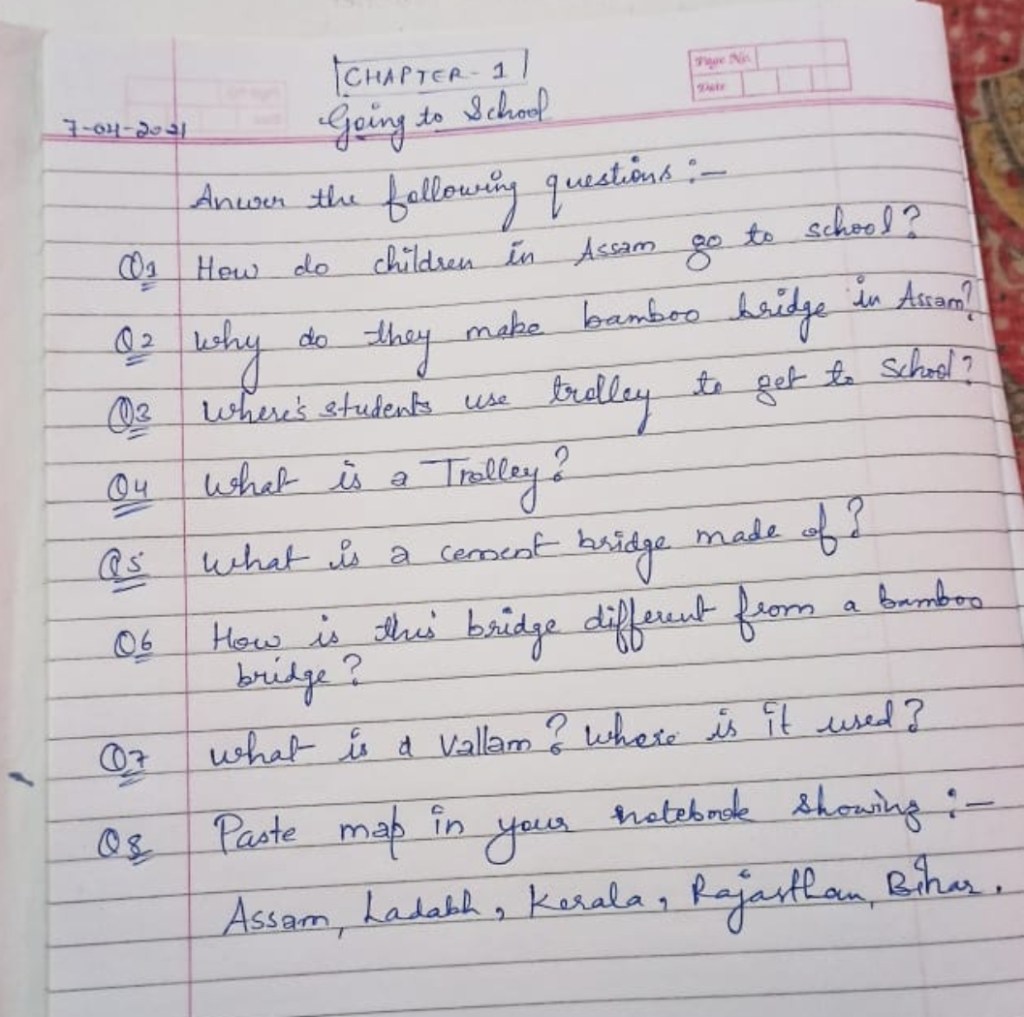 CHAPTER-1
Page No.
Date
7-04-2021
Going to School
Anwer the following questions :-
Q1 How do children in Assam go to school?
Q2 Why do they make bamboo bridge in Assam?
Q3 Where's students use trolley to get to school?
Q4 What is a Trolley?
Q5 What is a cement bridge made of?
Q6 How is this bridge different from a bamboo
bridge?
Q7 What is a Vallam? Where is it used?
Q8 Paste map in your notebook showing :-
Assam, Ladakh, Kerala, Rajasthan, Bihar.